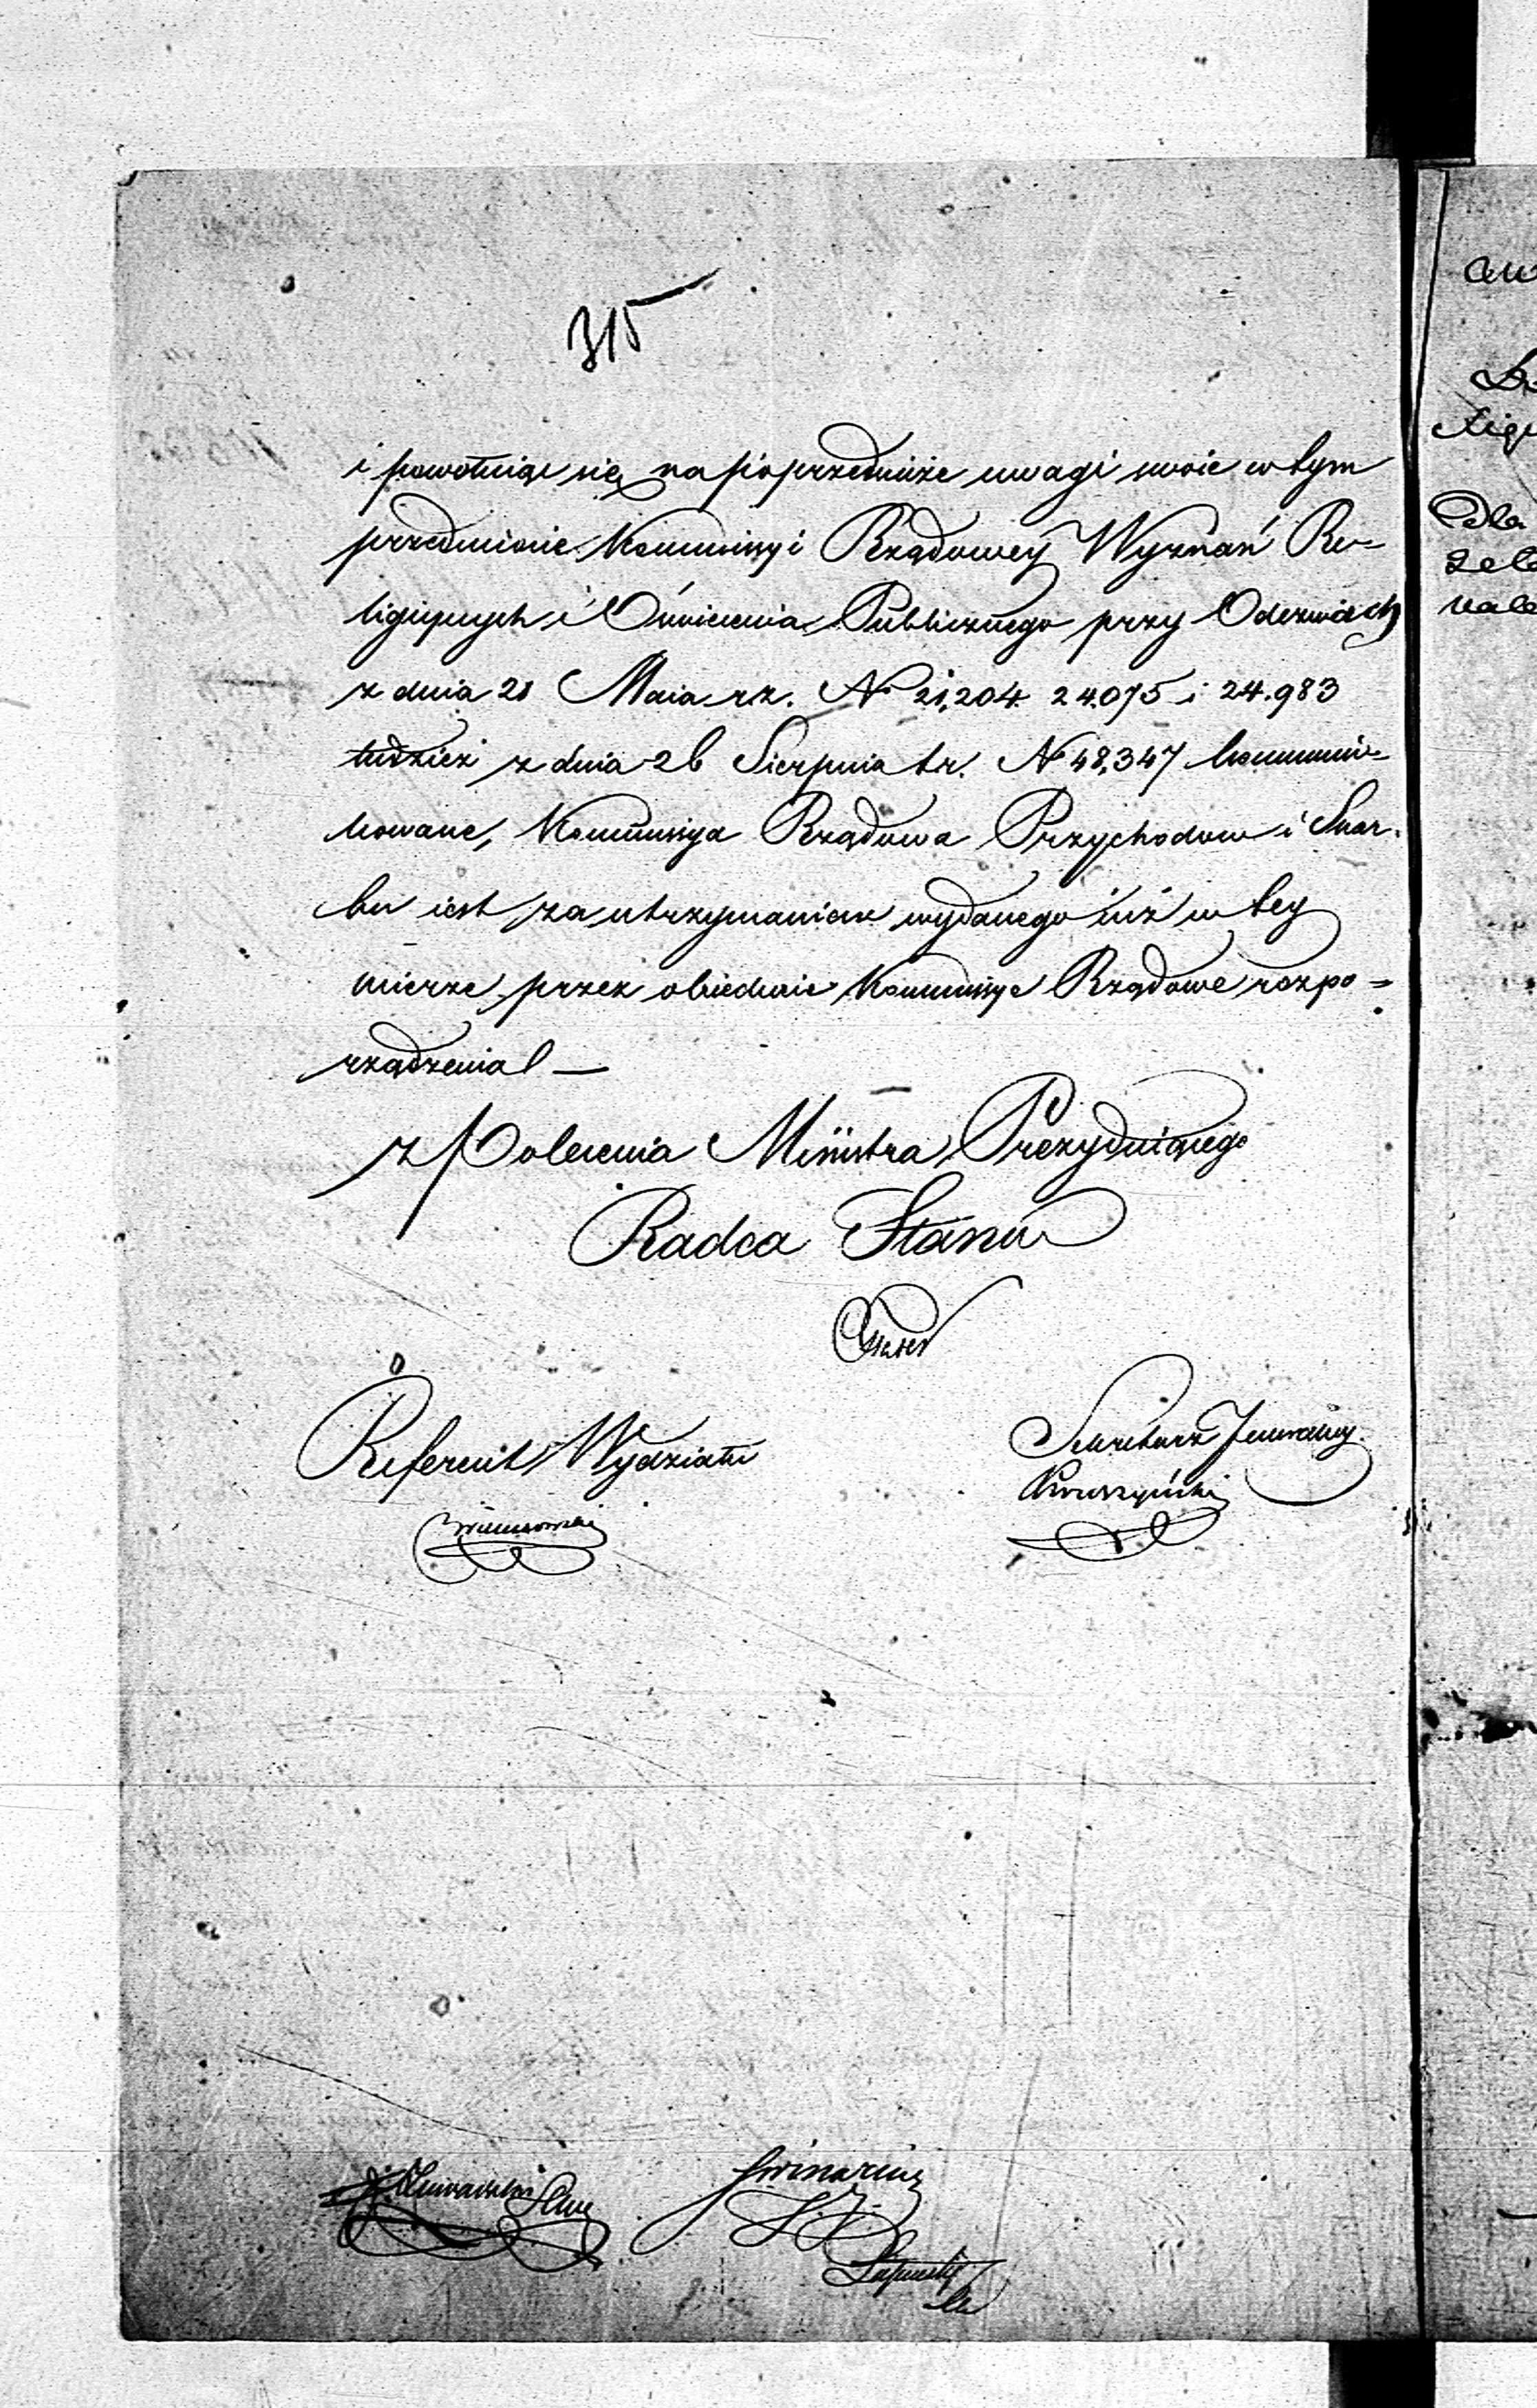 315
i powołuiąc się na poprzednicze uwagi swoie w tym
przedmiocie Kommissyi Rządowey Wyznań Re-
ligiynych i Oświecenia Publicznego przy Odezwach
z dnia 21 Maia r.z. Nº 21,204. 24.075 i 24.983
tudzież z dnia 26 Sierpnia t.r. Nº 48,347 kommuni-
kowane, Kommissya Rządowa Przychodow i Skar-
bu iest za utrzymaniem wydanego iuż w tey
mierze przez obiedwie Kommissye Rządowe rozpo-
rządzenia —
z Polecenia Ministra Prezyduiącego
Radca Stanu
Referent Wydziału
Sekretarz Jeneralny
Kruszyński